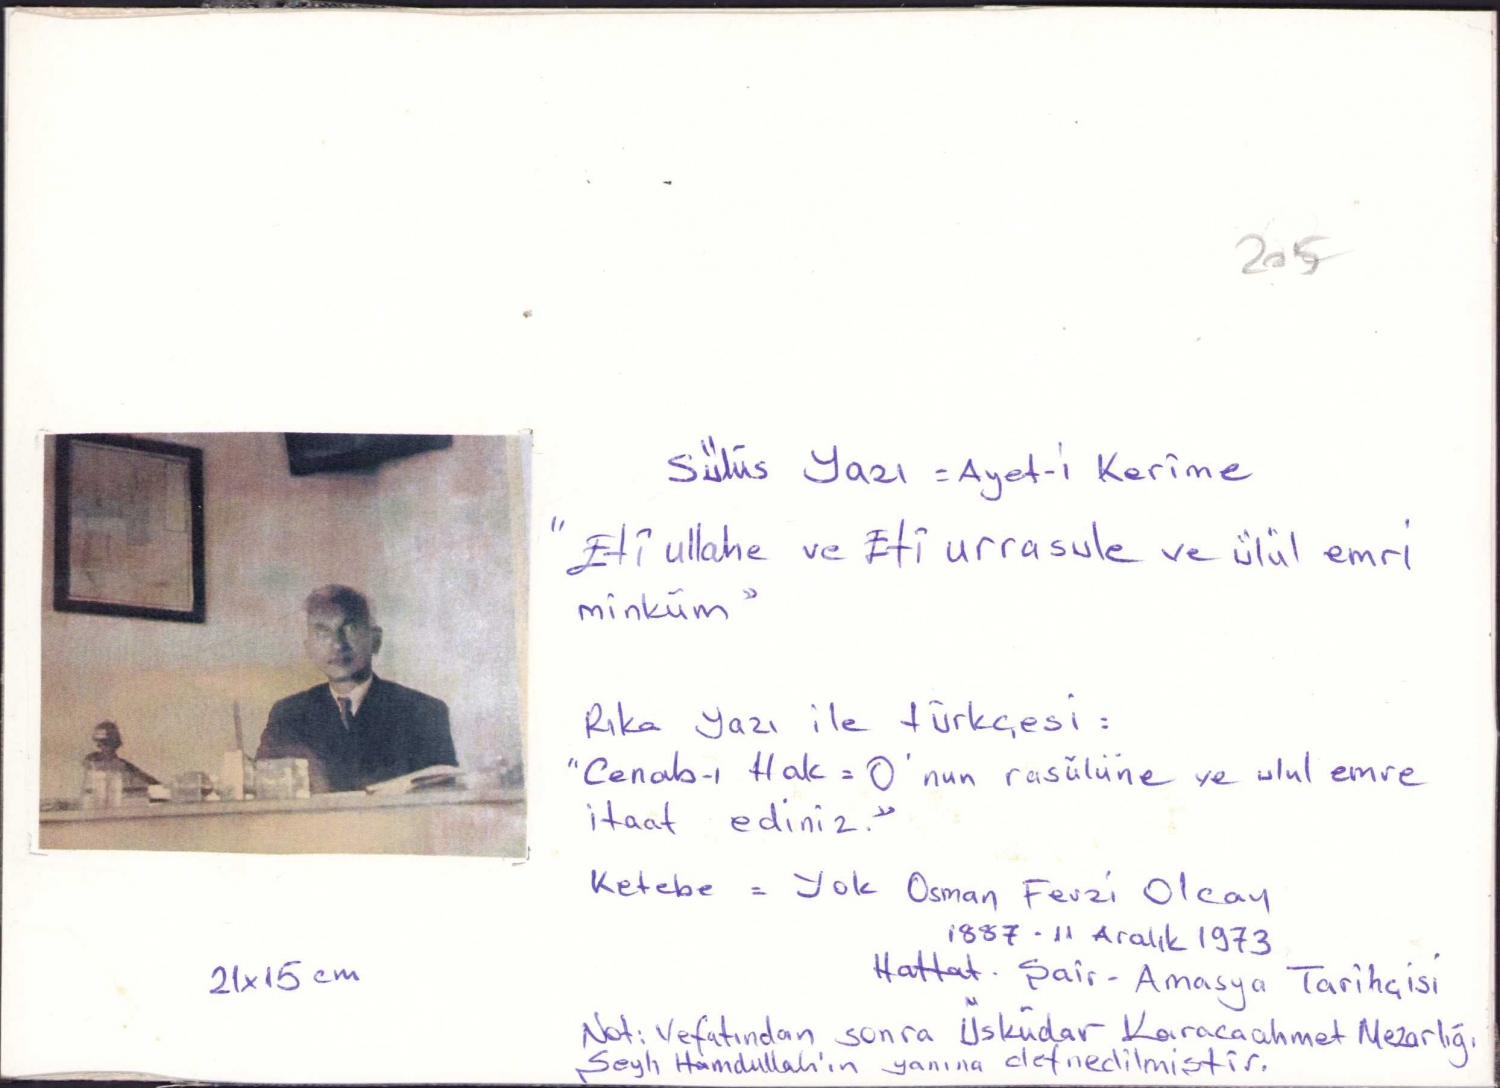 205
Sülüs Yazı = Ayet-i Kerîme
"Etî ullahe ve Etî urrasule ve ülül emri
minküm"
Rıka Yazı ile türkçesi:
"Cenab-ı Hak = O'nun rasülüne ve ulul emre
itaat ediniz."
Ketebe = Yok Osman Fevzi Olcay
1887 - 11 Aralık 1973
Hattat - Şair - Amasya Tarihçisi
21x15 cm
Not: Vefatından sonra Üsküdar Karacaahmet Mezarlığı
Şeyh Hamdullah'ın yanına defnedilmiştir.